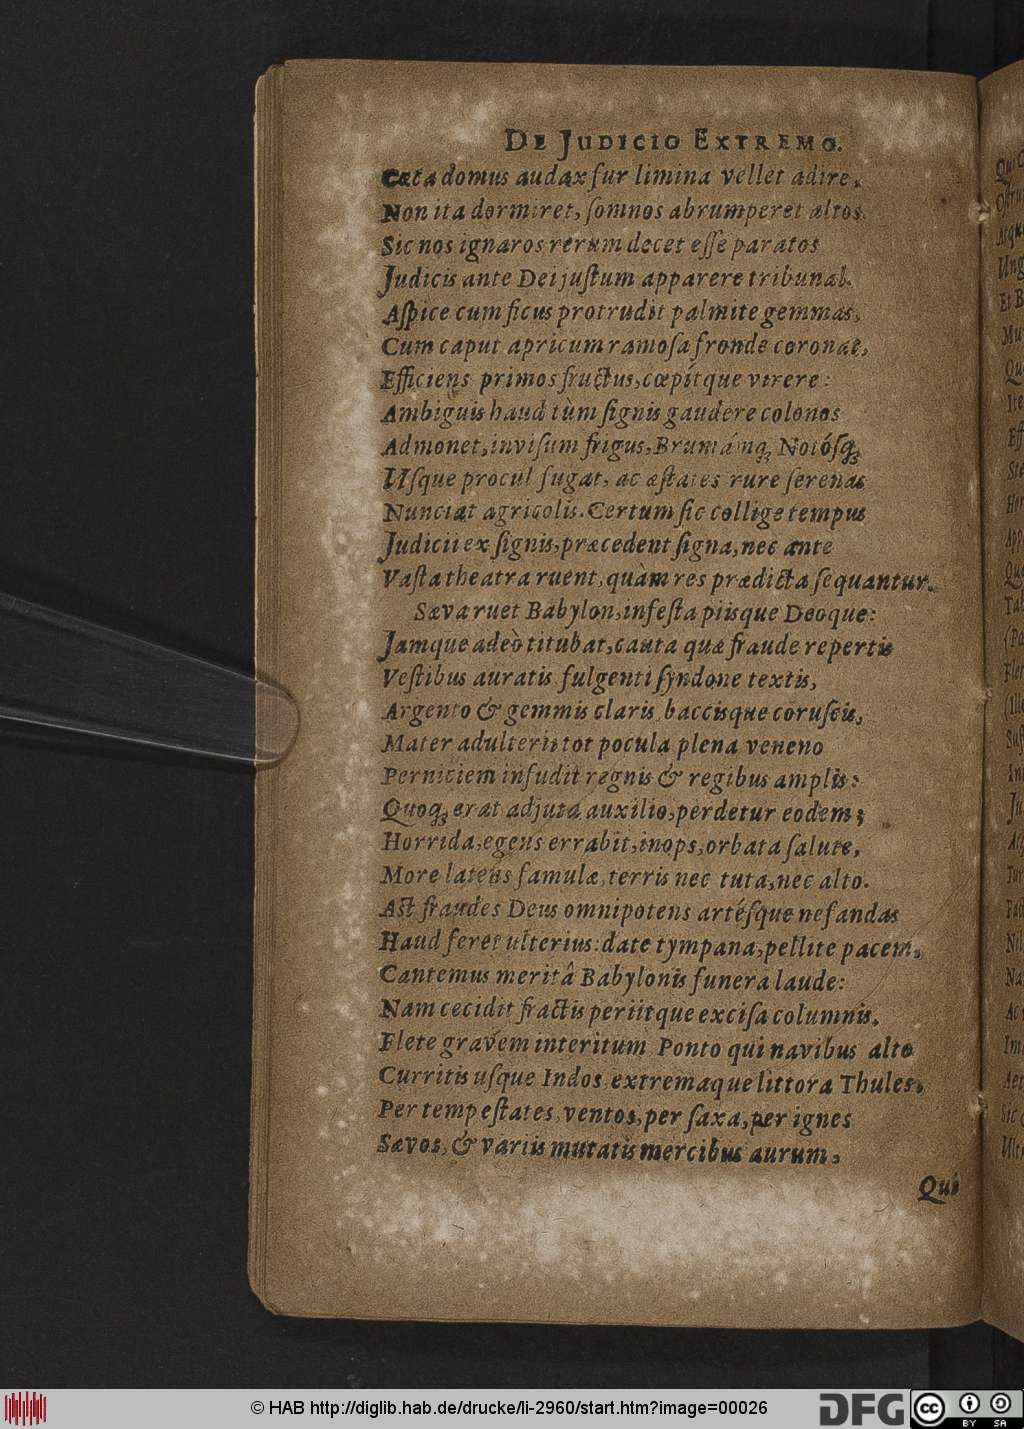 DE JUDICIO EXTREMO.
Cæca domus audax fur limina vellet adire,
Non ita dormiret, ſomnos abrumperet altos.
Sic nos ignaros rerum decet eſſe paratos
Judicis ante Dei juſtum apparere tribunal.
Aſpice cum ficus protrudit palmite gemmas,
Cum caput apricum ramoſa fronde coronat,
Efficiens primos fructus, cœpítque virere:
Ambiguis haud tùm ſignis gaudere colonos
Admonet, inviſum frigus, Brumámq́; Notóſq́;
Uſque procul fugat, ac æſtates rure ſerenas
Nunciat agricolis. Certum ſic collige tempus
Judicii ex ſignis, præcedent ſigna, nec ante
Vaſta theatra ruent, quàm res prædicta ſequantur.
Sæva ruet Babylon, infeſta piisque Deoque:
Jamque adeò titubat, cauta quæ fraude repertis
Veſtibus auratis fulgenti ſyndone textis,
Argento & gemmis claris baccisque coruſcis,
Mater adulteriis tot pocula plena veneno
Perniciem infudit regnis & regibus amplis:
Quoq́; erat adjuta auxilio, perdetur eodem;
Horrida, egens errabit, inops, orbata ſalute,
More latens famulæ, terris nec tuta, nec alto.
Aſt fraudes Deus omnipotens artéſque nefandas
Haud feret ulterius: date tympana, pellite pacem,
Cantemus meritâ Babylonis funera laude:
Nam cecidit fractis periitque exciſa columnis,
Flete gravem interitum Ponto qui navibus alto
Curritis uſque Indos extremaque littora Thules,
Per tempeſtates, ventos, per ſaxa, per ignes
Sævos, & variis mutatis mercibus aurum,
Qui
© HAB http://diglib.hab.de/drucke/li-2960/start.htm?image=00026
DFG
cc
BY SA